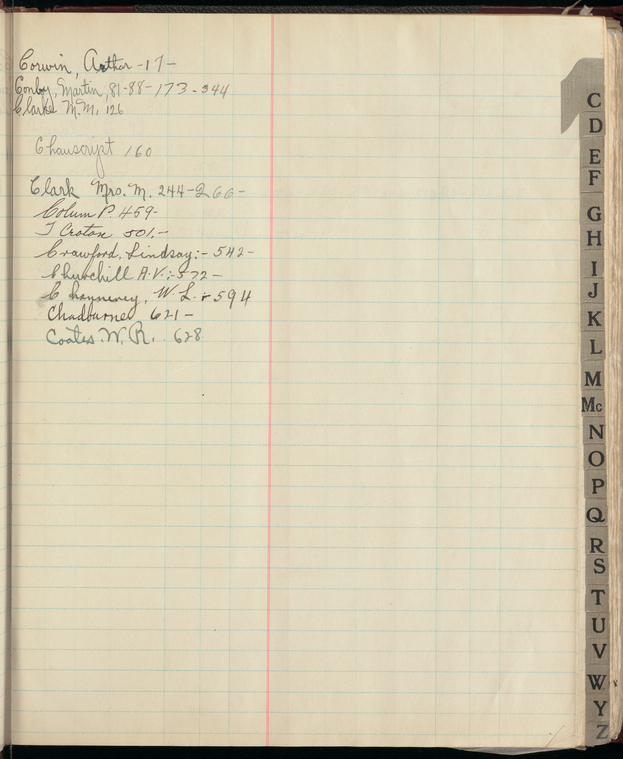 Corwin, Arthur -17-
Conby, Martin, 81-88-173-344
Clarke M.M. 126
Chauscript 160
Clark Mrs. M. 244-266-
Colum P. 459-
T Croton 501.-
Crawford, Lindsay:- 542-
Churchill A.V.:-572-
W. L. :- 594
Chadburne 621-
Coates. W. R. 628
C
D
E
F
G
H
I
J
K
L
M
Mc
N
O
P
Q
R
S
T
U
V
W
Y
Z